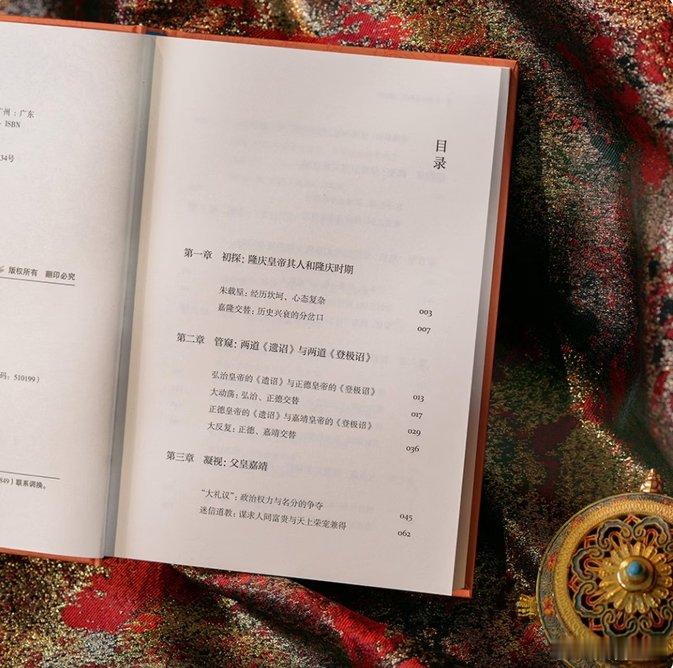 广州：广东
ISBN
34号
版权所有 翻印必究
码：510199）
849）联系调换。
目录
第一章 初探：隆庆皇帝其人和隆庆时期
朱载垕：经历坎坷、心态复杂 003
嘉隆交替：历史兴衰的分岔口 007
第二章 管窥：两道《遗诏》与两道《登极诏》
弘治皇帝的《遗诏》与正德皇帝的《登极诏》 013
大动荡：弘治、正德交替 017
正德皇帝的《遗诏》与嘉靖皇帝的《登极诏》 029
大反复：正德、嘉靖交替 036
第三章 凝视：父皇嘉靖
“大礼议”：政治权力与名分的争夺 045
迷信道教：谋求人间富贵与天上荣宠兼得 062